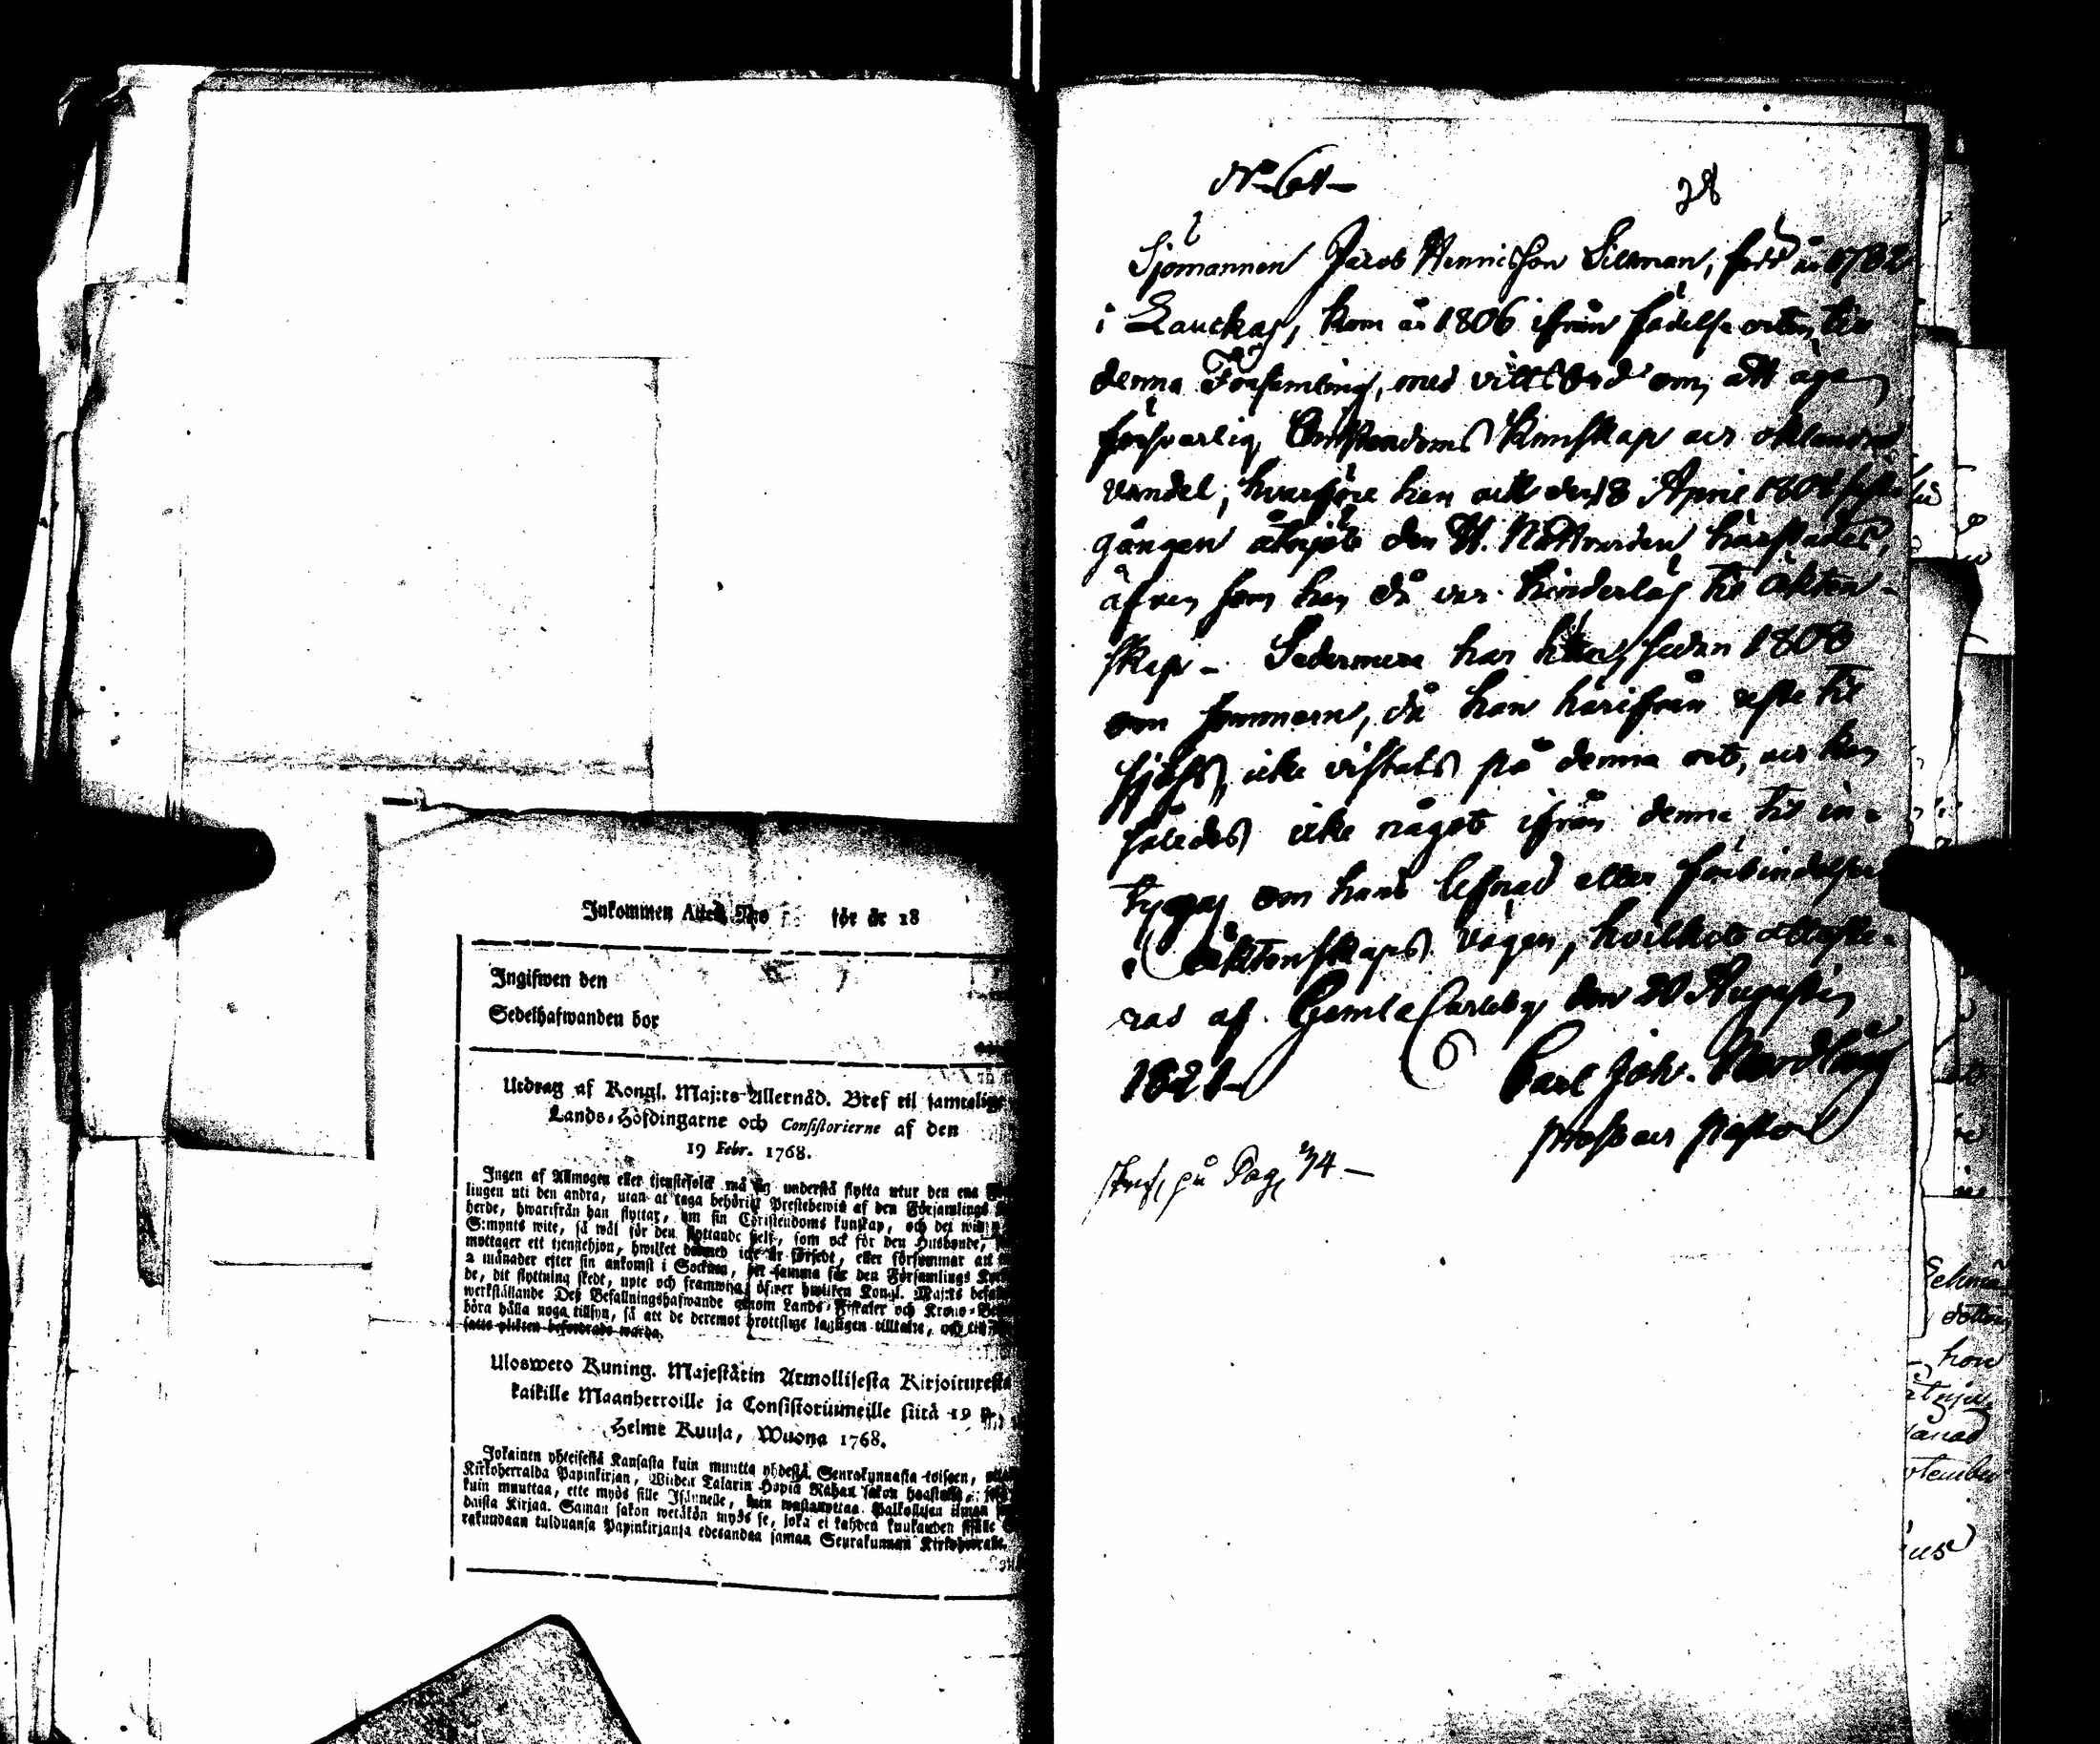 Inkommen Attest N:ro för år 18
Ingifwen den
Sedelhafwanden bor
Utdrag af Kongl. Maj:ts Allernåd. Bref til samtelige
Lands-Höfdingarne och Consistorierne af den
19 Febr. 1768.
Ingen af Allmogen eller tjenstefolck må sig understå flytta utur den ena
lingen uti den andra, utan at taga behörigt Prestebewis af den Församlings
herde, hwarifrån han flyttar, om sin Christendoms kunskap, och det wid
S:mynts wite, så wäl för den flyttande sjelf, som ock för den Husbonde,
mottager ett tjenstehjon, hwilket dermed icke är försedt, eller försummar att
2 månader efter sin ankomst i Socknen, för samma för den Församlings
de, dit flyttning skedt, upte och framwisa; öfwer hwilken Kongl. Maj:ts
werkställande Deß Befallningshafwande genom Lands-Fiskaler och Krono-
böra hålla noga tillsyn, så att de deremot brottslige lagligen tilltalte, och
satte plikten befordrade warda.
Ulosweto Kuning. Majestätin Armollisesta Kirjoituxesta
kaikille Maanherroille ja Consistoriumeille siitä 19 p.
Helme Kuusa, Wuona 1768.
Jokainen yhteisestä Kansasta kuin muutta yhdestä Seurakunnasta toiseen,
Kirkoherralda Papinkirjan, Wiiden Talarin Hopia Rahan sakon haastolla,
kuin muuttaa, ette myös sille Isännelle, kuin wastanottaa Palkollisen ilman
daista Kirjaa. Saman sakon wetäkön myös se, joka ei kahden kuukauden sisälle
rakundaan tulduansa Papinkirjansa edesandaa saman Seurakunnan Kirkoherralle.
28
Sjömannen Jacob Hennicsson Sillman, född år 1782
i Lauckas, kom år 1806 ifrån födelse orten til
denna Församling, med vittsbörd om att äga
försvarlig Christendoms kunskap och oklandrad
vandel, hvarföre han ock den 8 April 1808 sista
gången åtnjöt den H. Nattvarden härstädes,
äfven som han då var hinderlös til äkten-
skap - Sedermera har han, sedan 1808
om sommarn, då han härifrån reste til
sjöss, icke vistats på denna ort, och kan
således icke något ifrån denna tid in-
tygas om hans lefnad eller förbindelser
i äktenskaps vägen, hvilket atteste-
ras af. Gamla Carleby den 20 Augusti
1821 Carl Joh. Nordlung
Probst och Pastor
skrif. på Pag. 74 -